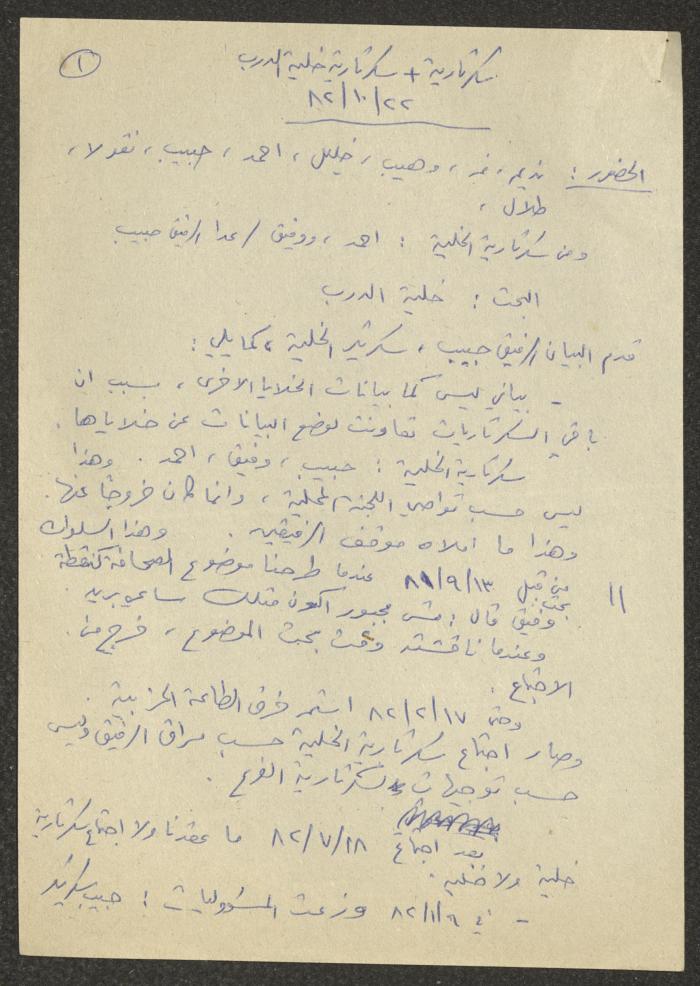 ١
سكرتارية + سكرتارية خلية الدرب
٨٢/١٠/٢٢
الحضور : نديم ، نمر ، وهيب ، خليل ، احمد ، حبيب ، نقولا ،
طلال ،
ومن سكرتارية الخلية : احمد ، ووفيق / عدا الرفيق حبيب
البحث : خلية الدرب
قدم البيان الرفيق حبيب ، سكرتير الخلية ، كما يلي :
- بياني ليس كما بيانات الخلايا الاخرى ، بسبب ان
باقي السكرتاريات تعاونت لوضع البيانات عن خلاياها .
سكرتارية الخلية : حبيب ، وفيق ، احمد . وهذا
ليس حسب تواصي اللجنة المحلية ، وانما كان خروجا عنها .
وهذا ما املاه موقف الرفيقين . وهذا السلوك
من قبل ٨١/٩/١٣ عندما طرحنا موضوع الصحافة كنقطة
بحث
وفيق قال : مش مجبور اكون مثلك ساعي بريد .
وعندما ناقشته وقت بحث الموضوع ، خرج من
الاجتماع .
وحتى ٨٢/٢/١٧ استمر خرق الطاعة الحزبية .
وصار اجتماع سكرتارية الخلية حسب مراق الرفيق وليس
حسب توجيهات سكرتارية الفرع .
بعد اجتماع ٨٢/٧/١٨ ما عقدنا ولا اجتماع سكرتارية
خلية ولا خلية .
- في ٨٢/١/٩ وزعت المسؤوليات : حبيب سكرتير